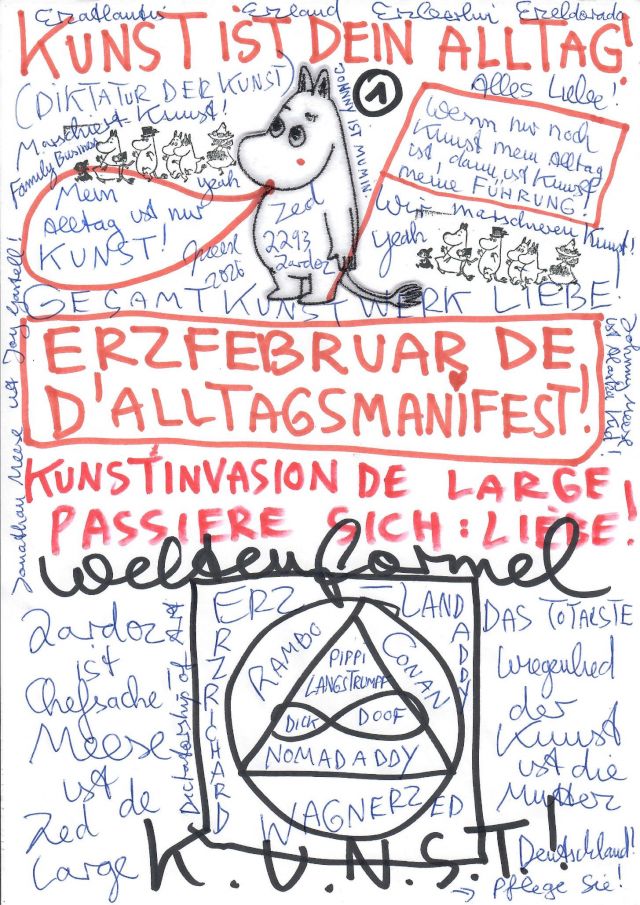 Erzatlantis Erzland Erzberlin Erzeldorado
KUNST IST DEIN ALLTAG!
(DIKTATUR DER KUNST)
Marschiert Kunst!
Family Business
yeah
Mein
Alltag ist nur
KUNST!
JOHNNY IST MUMIN
1
Alles Liebe!
Wenn nur noch
Kunst mein Alltag
ist, dann ist Kunst
meine FÜHRUNG!
Wir marschieren Kunst!
yeah
Zed
2293
Zardoz
Meese
2026
GESAMTKUNSTWERK LIEBE!
ERZFEBRUAR DE
D'ALLTAGSMANIFEST!
Jonathan Meese ist
Johnny Meese
ist
KUNSTINVASION DE LARGE
PASSIERE SICH: LIEBE!
Weltenformel
Zardoz
ist
Chefsache!
Meese
ist
Zed de
Large
Dictatorship of Art
ERZ-LAND
ERZRICHARD
DADDY
RAMBO
CONAN
PIPPI
LANGSTRUMPF
DICK DOOF
NOMADADDY
WAGNERZED
K.U.N.S.T.!
DAS TOTALSTE
Wiegenlied
der
Kunst
ist die
Mutter
Deutschland!
→ Pflege Sie!